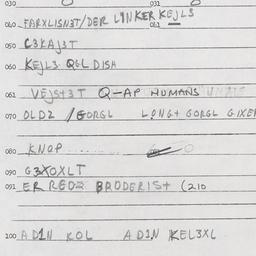 030 031
040 FARXLISN3T/DER LINKER KEJLS
041
050 C3KAJ3T
060 KEJLS QGL DISH
061 VEJST3T Q-AP HUMANS
070 OLD2 / GORGL LONG+ GORGL GIXER
080 KNOP
090 G3XOXLT
091 ER RED2 BRODERIST (210
100 AD1N KOL AD1N KEL3XL